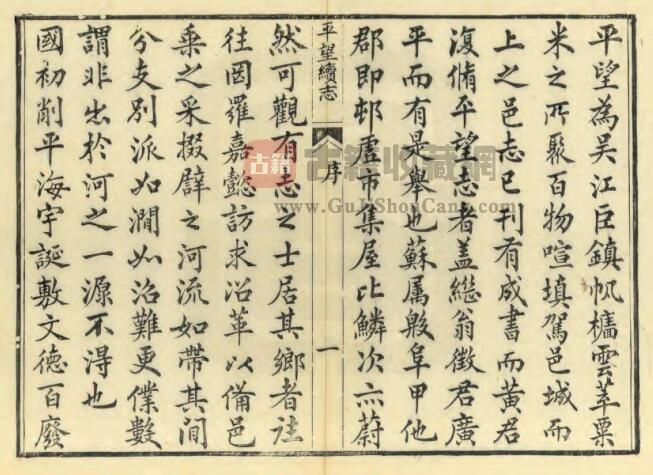 平望為吳江巨鎮帆檣雲萃粟
米之所聚百物喧填駕邑城而
上之邑志已刊有成書而黃君
復脩平望志者盖繼翁徵君廣
平而有是舉也蘇属殷阜甲他
郡即邨廬市集屋比鱗次亦蔚
平望續志
序
一
然可觀有志之士居其鄉者往
往网羅嘉懿訪求沿革以備邑
乗之采掇辟之河流如帶其間
分支別派如澗如沼難更僕數
謂非出於河之一源不得也
國初削平海宇誕敷文德百廢
古籍
古籍收藏网
www.GuJiShouCang.com